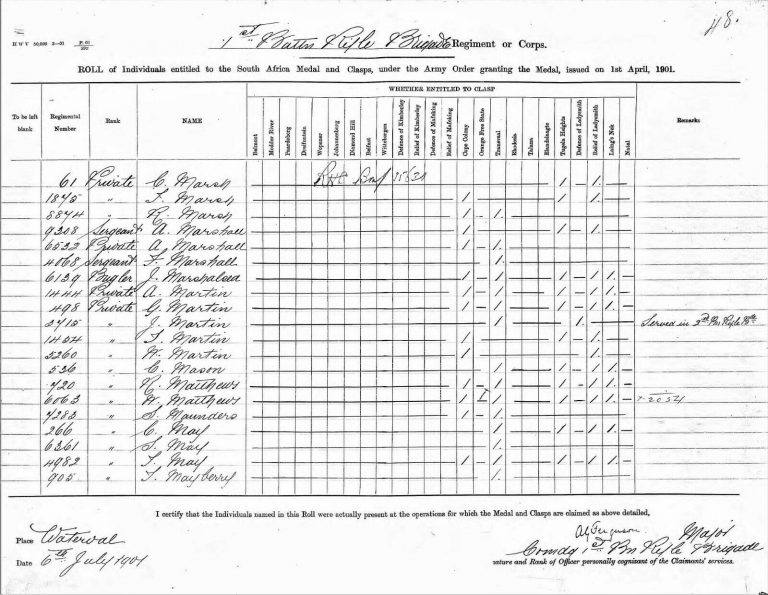 48.
H W V 50,000 3-01 P.01/292
1st Battn Rifle Brigade Regiment or Corps.
ROLL of Individuals entitled to the South Africa Medal and Clasps, under the Army Order granting the Medal, issued on 1st April, 1901.
WHETHER ENTITLED TO CLASP
To be left blank Regimental Number Rank NAME Belmont Modder River Paardeberg Dreifontein Wepener Johannesburg Diamond Hill Belfast Wittebergen Defence of Kimberley Relief of Kimberley Defence of Mafeking Relief of Mafeking Cape Colony Orange Free State Transvaal Rhodesia Talana Elandslaagte Tugela Heights Defence of Ladysmith Relief of Ladysmith Laing's Nek Natal Remarks
61 Private C. Marsh / /
1875 " T. Marsh / / /
8874 " R. Marsh / - /
9308 Sergeant A. Marshall / / - /
6532 Private A. Marshall / - /
4068 Sergeant F. Marshall /
6139 Bugler J. Marshalsea / - / / - / / -
1444 Private A. Martin / - / / - / / -
498 Private G. Martin / - / / - / / -
2715 " J. Martin / / Served in 2nd Bn Rifle Bde
1454 " T. Martin / / - /
5260 " W. Martin / /
536 " C. Mason / / - / / -
720 " R. Matthews / - / / - / / -
6063 " W. Matthews / / / - / / -
7283 " S. Maunders / - /
266 " C. May / / - / / -
6361 " S. May /
4982 " T. May / - / / - / / -
905 " T. Mayberry /
I certify that the Individuals named in this Roll were actually present at the operations for which the Medal and Clasps are claimed as above detailed,
Place Waterval
Ferguson Major
Comdg 1st Bn Rifle Brigade
Date 6th July 1901
ature and Rank of Officer personally cognizant of the Claimants' services.